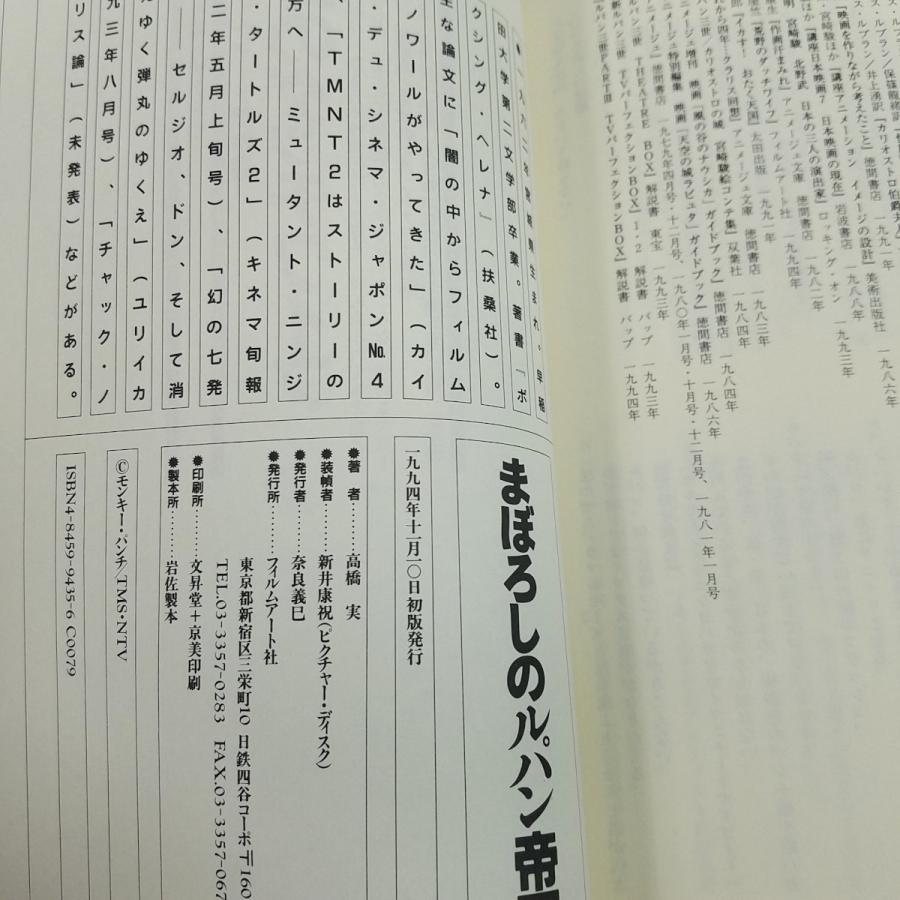 ス・ルブラン/井上湧訳『カリオストロ伯爵夫人』
『映画を作りながら考えたこと』徳間書店 一九九一年
宮崎駿ほか『講座アニメーション イメージの設計』美術出版社 一九八六年
ほか『講座日本映画7 日本映画の現在』岩波書店 一九八八年
明、宮崎駿、北野武『日本の三人の演出家』ロッキング・オン 一九九三年
『作画汗まみれ』アニメージュ文庫 徳間書店 一九八二年
『荒野のダッチワイフ』フィルムアート社 一九九四年
『イカす! おたく天国』太田出版 一九九一年
れから四年…クラリス回想』アニメージュ文庫 徳間書店 一九八三年
パン三世 カリオストロの城 宮崎駿絵コンテ集』双葉社 一九八四年
ニメージュ増刊 映画『風の谷のナウシカ』ガイドブック』徳間書店 一九八四年
ニメージュ特別編集 映画『天空の城ラピュタ』ガイドブック』徳間書店 一九八六年
ニメージュ』徳間書店 一九七九年四月号・十二月号、一九八〇年一月号・十月号・十二月号、一九八一年一月号
パン三世 THEATRE BOX』解説書 東宝 一九九三年
新ルパン三世 TVパーフェクションBOX』1・2 解説書 バップ 一九九三年
パン三世PARTⅢ TVパーフェクションBOX』解説書 バップ 一九九四年
生まれ。早稲
田大学第二文学部卒業。著書『ボ
クシング・ヘレナ』(扶桑社)。
主な論文に「闇の中からフィルム
ノワールがやってきた」(カイ
・デュ・シネマ・ジャポン№4
、「TMNT2はストーリーの
方へ――ミュータント・ニンジ
・タートルズ2」(キネマ旬報
二年五月上旬号)、「幻の七発
――セルジオ、ドン、そして消
えゆく弾丸のゆくえ」(ユリイカ
九三年八月号)、「チャック・ノ
リス論」(未発表)などがある。
まぼろしのルパン帝
一九九四年十一月一〇日初版発行
●著 者………高橋 実
●装幀者………新井康祝(ピクチャー・ディスク)
●発行者………奈良義巳
●発行所………フィルムアート社
東京都新宿区三栄町10 日鉄四谷コーポ 〒160
TEL.03-3357-0283 FAX.03-3357-067
●印刷所………文昇堂+京美印刷
●製本所………岩佐製本
©モンキー・パンチ/TMS・NTV
ISBN4-8459-9435-6 C0079